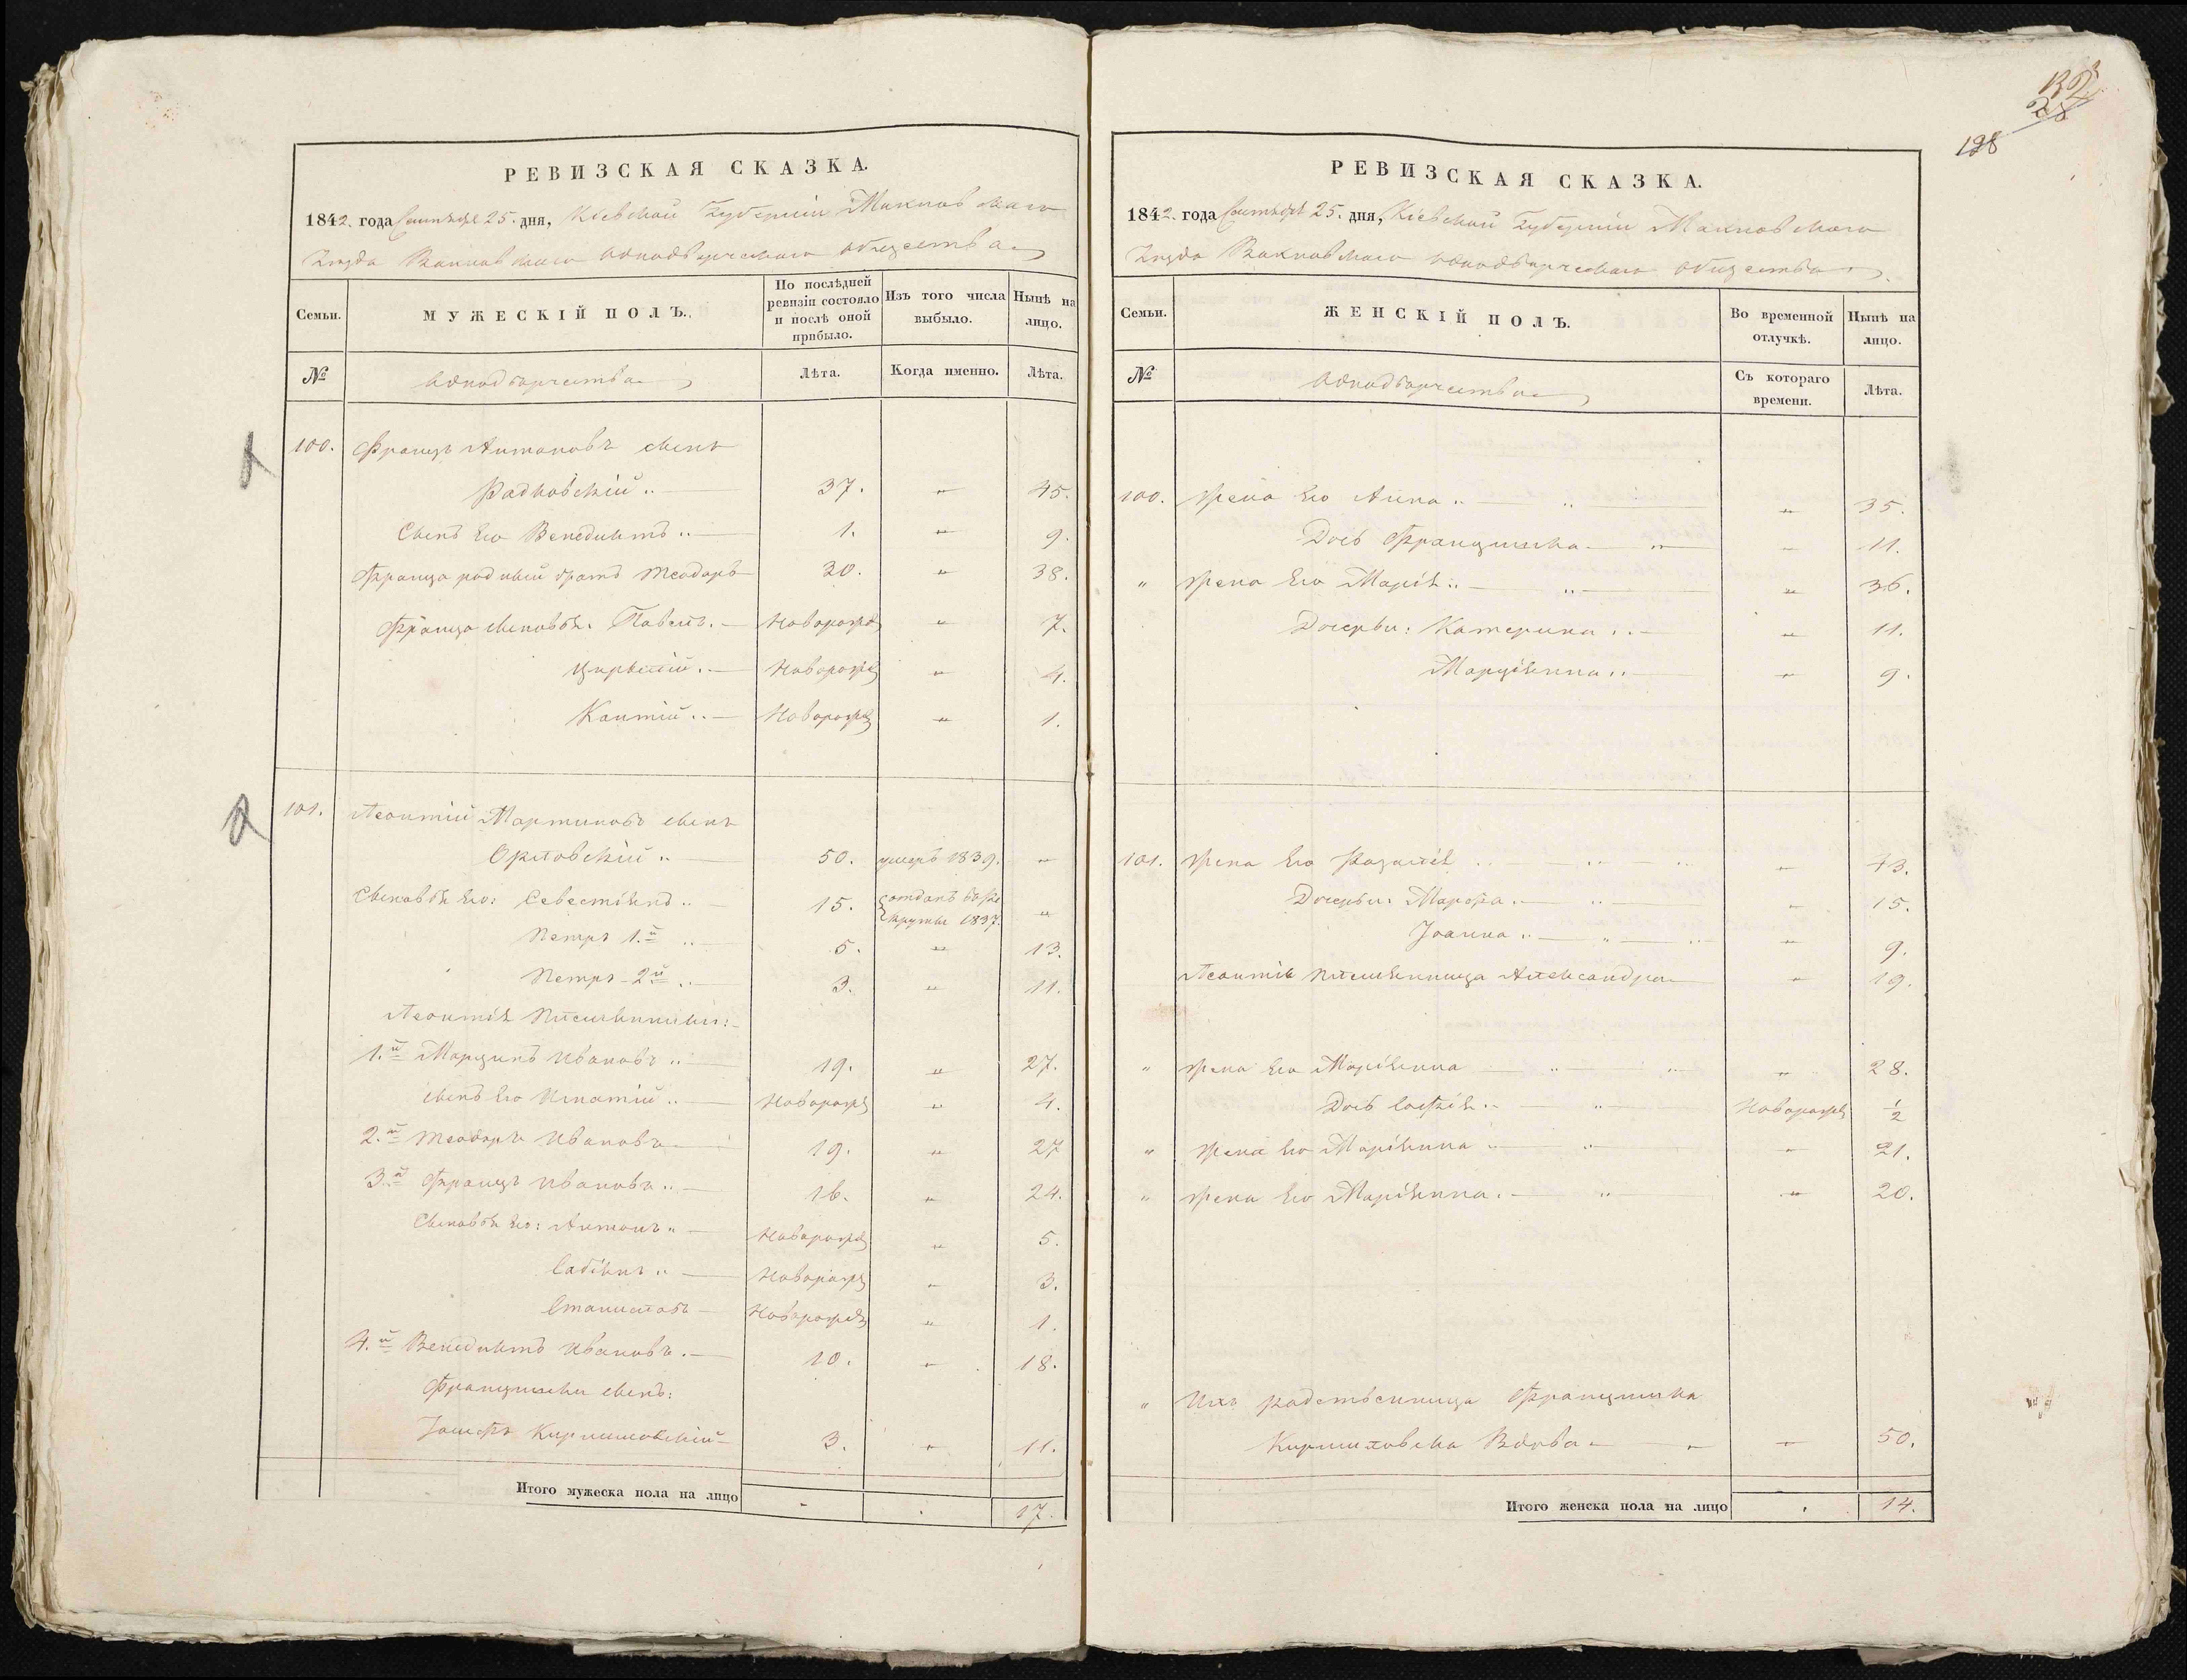 РЕВИЗСКАЯ СКАЗКА.
1842. года Сентября 25. дня, Кіевской Губерніи Махновскаго
Уѣзда Вахновскаго однодворческаго общества
Семьи.
МУЖЕСКІЙ ПОЛЪ.
По послѣдней ревизіи состояло и послѣ оной прибыло.
Изъ того числа выбыло.
Нынѣ на лицо.
№
однодворчества
Лѣта.
Когда именно.
Лѣта.
100. Францъ Антоновъ сынъ
Радковскій.. 37. „ 45.
Сынъ Его Венедиктъ .. 1. „ 9.
Франца родный братъ Теодоръ 30. „ 38.
Франца сыновья: Павелъ. Новорожд „ 7.
Новорожд „ 4.
Кантій.. Новорожд „ 1.
101. Леонтій Мартиновъ сынъ
Орловскій .. 50. умеръ 1839. „
Сыновья Его: Севестіянъ .. 15. отданъ въ ре
круты 1837. „
Петръ 1.й .. 5. „ 13.
Петръ 2й .. 3. „ 11.
Леонтія племянники:
1.й Марцинъ Ивановъ .. 19. „ 27.
сынъ Его Игнатій .. Новорожд „ 4.
2.й Теодоръ Ивановъ 19. „ 27
3.й Францъ Ивановъ .. 16. „ 24.
Сыновья Его: Антонъ „ Новорожд „ 5.
Сабіянъ .. Новорожд „ 3.
Станиславъ Новорожд „ 1.
4.й Венедиктъ Ивановъ. 10. „ 18.
Францишки сынъ:
Іосифъ Кириловскій 3. „ 11.
Итого мужеска пола на лицо - . 17.
198
РЕВИЗСКАЯ СКАЗКА.
1842. года Сентября 25. дня, Кіевской Губерніи Махновскаго
Уѣзда Вахновскаго однодворческаго общества
Семьи.
ЖЕНСКІЙ ПОЛЪ.
Во временной отлучкѣ.
Нынѣ на лицо.
№
однодворчества
Съ котораго времени.
Лѣта.
100. Жена Его Анна .. „ 35.
Дочь Францишка „ 11.
„ Жена Его Марія .. „ 36.
Дочерьи: Катерина .. „ 11.
Марціянна .. „ 9.
101. Жена Его Розалія .. „ 43.
Дочерьи: Марфа .. „ 15.
Іоанна .. „ 9.
Леонтія племянница Александра „ 19.
„ Жена Его Маріянна .. „ 28.
Дочь Софія .. Новорожд 1/2
„ Жена Его Маріянна .. „ 21.
„ Жена Его Маріянна. „ 20.
„ Ихъ родственница Францишка
Вдова „ 50.
Итого женска пола на лицо . 14.